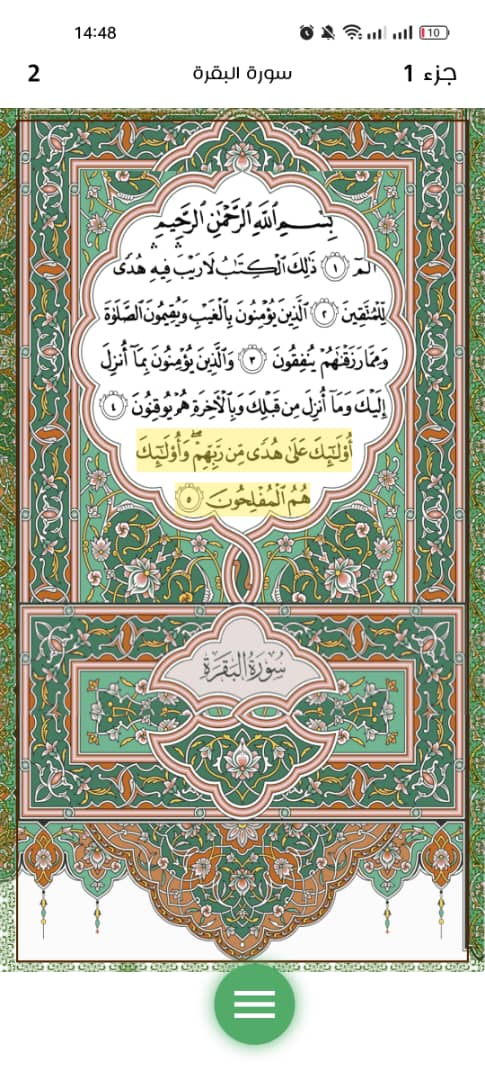 14:48
10
جزء 1
سورة البقرة
2
بِسْمِ ٱللَّهِ ٱلرَّحْمَٰنِ ٱلرَّحِيمِ
الٓمٓ ١ ذَٰلِكَ ٱلْكِتَٰبُ لَا رَيْبَ ۛ فِيهِ ۛ هُدًى
لِّلْمُتَّقِينَ ٢ ٱلَّذِينَ يُؤْمِنُونَ بِٱلْغَيْبِ وَيُقِيمُونَ ٱلصَّلَوٰةَ
وَمِمَّا رَزَقْنَٰهُمْ يُنفِقُونَ ٣ وَٱلَّذِينَ يُؤْمِنُونَ بِمَآ أُنزِلَ
إِلَيْكَ وَمَآ أُنزِلَ مِن قَبْلِكَ وَبِٱلْءَاخِرَةِ هُمْ يُوقِنُونَ ٤
أُو۟لَٰٓئِكَ عَلَىٰ هُدًى مِّن رَّبِّهِمْ ۖ وَأُو۟لَٰٓئِكَ
هُمُ ٱلْمُفْلِحُونَ ٥
سُورَةُ البَقَرَةِ